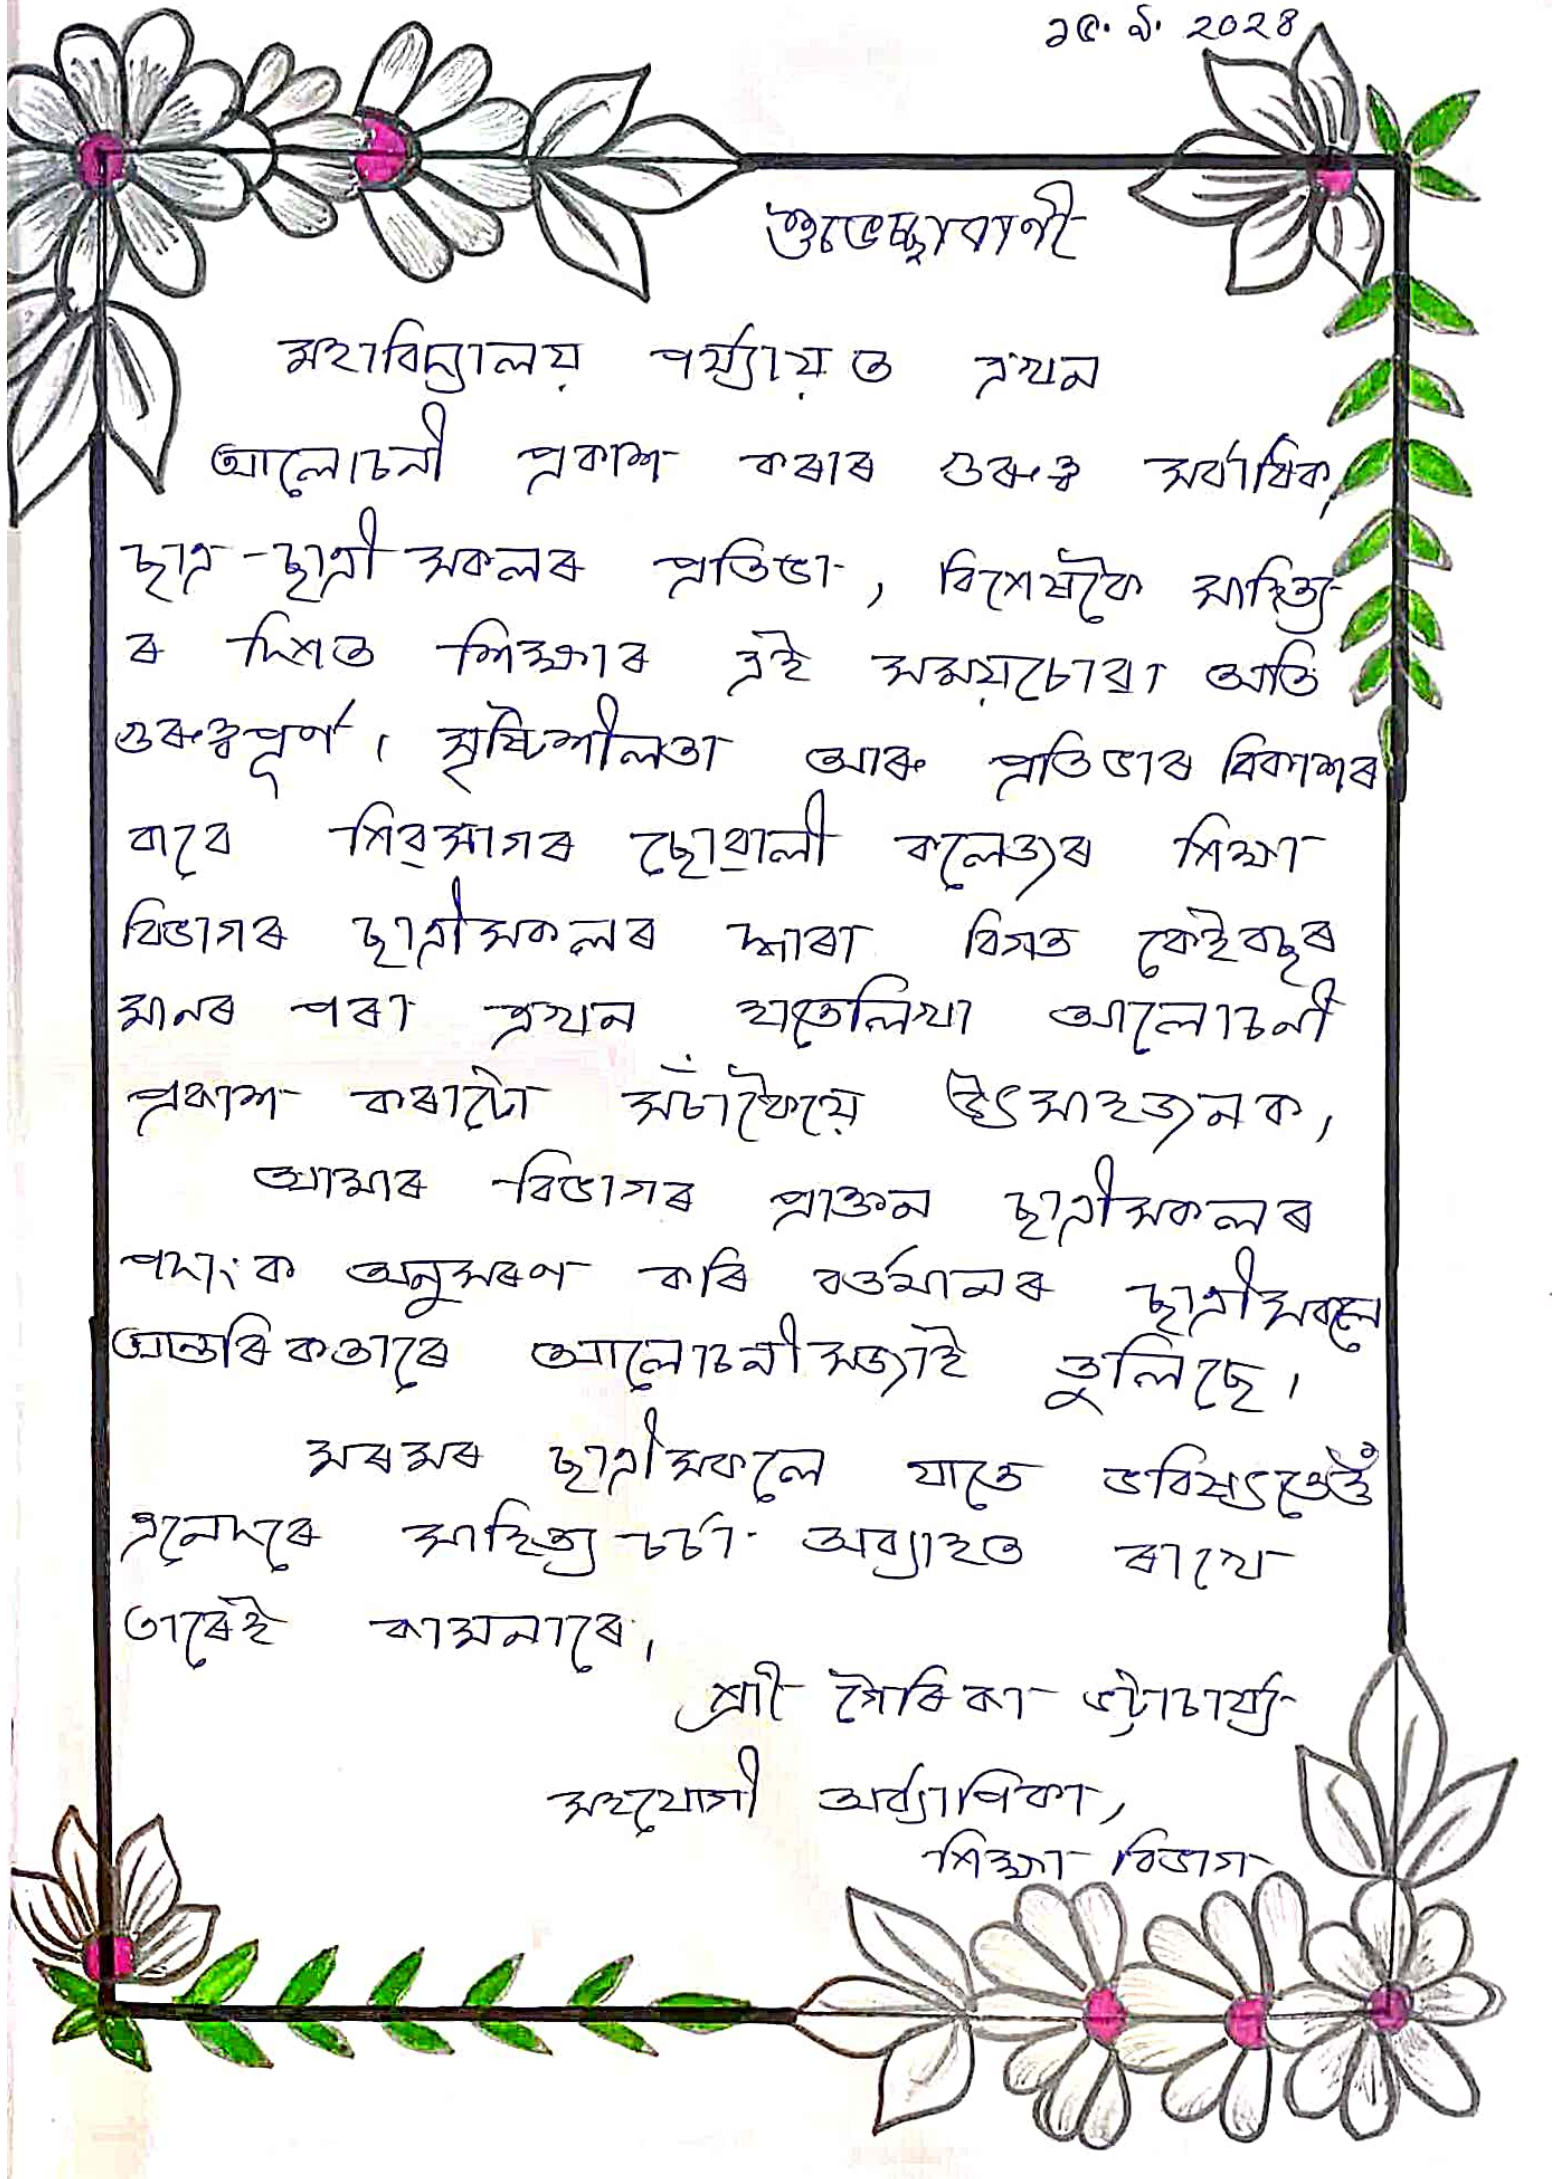 ১৫. ৯. ২০২৪
শুভেচ্ছাবাণী
মহাবিদ্যালয় পৰ্য্যায়ত এখন
আলোচনী প্ৰকাশ কৰাৰ গুৰুত্ব সৰ্বাধিক,
ছাত্ৰ-ছাত্ৰীসকলৰ প্ৰতিভা, বিশেষকৈ সাহিত্য-
ৰ দিশত শিক্ষাৰ এই সময়চোৱা অতি
গুৰুত্বপূৰ্ণ। সৃষ্টিশীলতা আৰু প্ৰতিভাৰ বিকাশৰ
বাবে শিৱসাগৰ ছোৱালী কলেজৰ শিক্ষা
বিভাগৰ ছাত্ৰীসকলৰ দ্বাৰা বিগত কেইবছৰ
মানৰ পৰা এখন হাতেলিখা আলোচনী
প্ৰকাশ কৰাটো সঁচাকৈয়ে উৎসাহজনক,
আমাৰ বিভাগৰ প্ৰাক্তন ছাত্ৰীসকলৰ
পদাংক অনুসৰণ কৰি বৰ্তমানৰ ছাত্ৰীসকলে
আন্তৰিকতাৰে আলোচনীসজাই তুলিছে।
মৰমৰ ছাত্ৰীসকলে যাতে ভবিষ্যতেওঁ
এনেদৰে সাহিত্য চৰ্চা অব্যাহত ৰাখে
তাৰেই কামনাৰে,
শ্ৰী গৈৰিকা ভট্টাচাৰ্য্য
সহযোগী অৰ্ধ্যাপিকা,
শিক্ষা বিভাগ